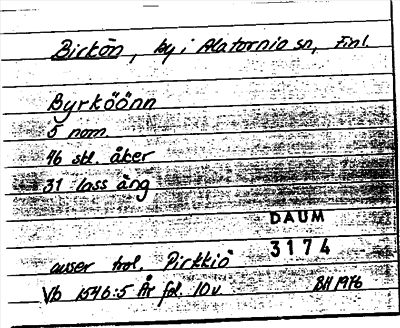 Birkön, by i Alatornio sn, Finl.
Byrköönn
5 nom
46 stl. åker
31 lass äng
DAUM
3174
avser trol. Pirkkiö
Vb 1546:5 År fol. 10v.
BH 1976